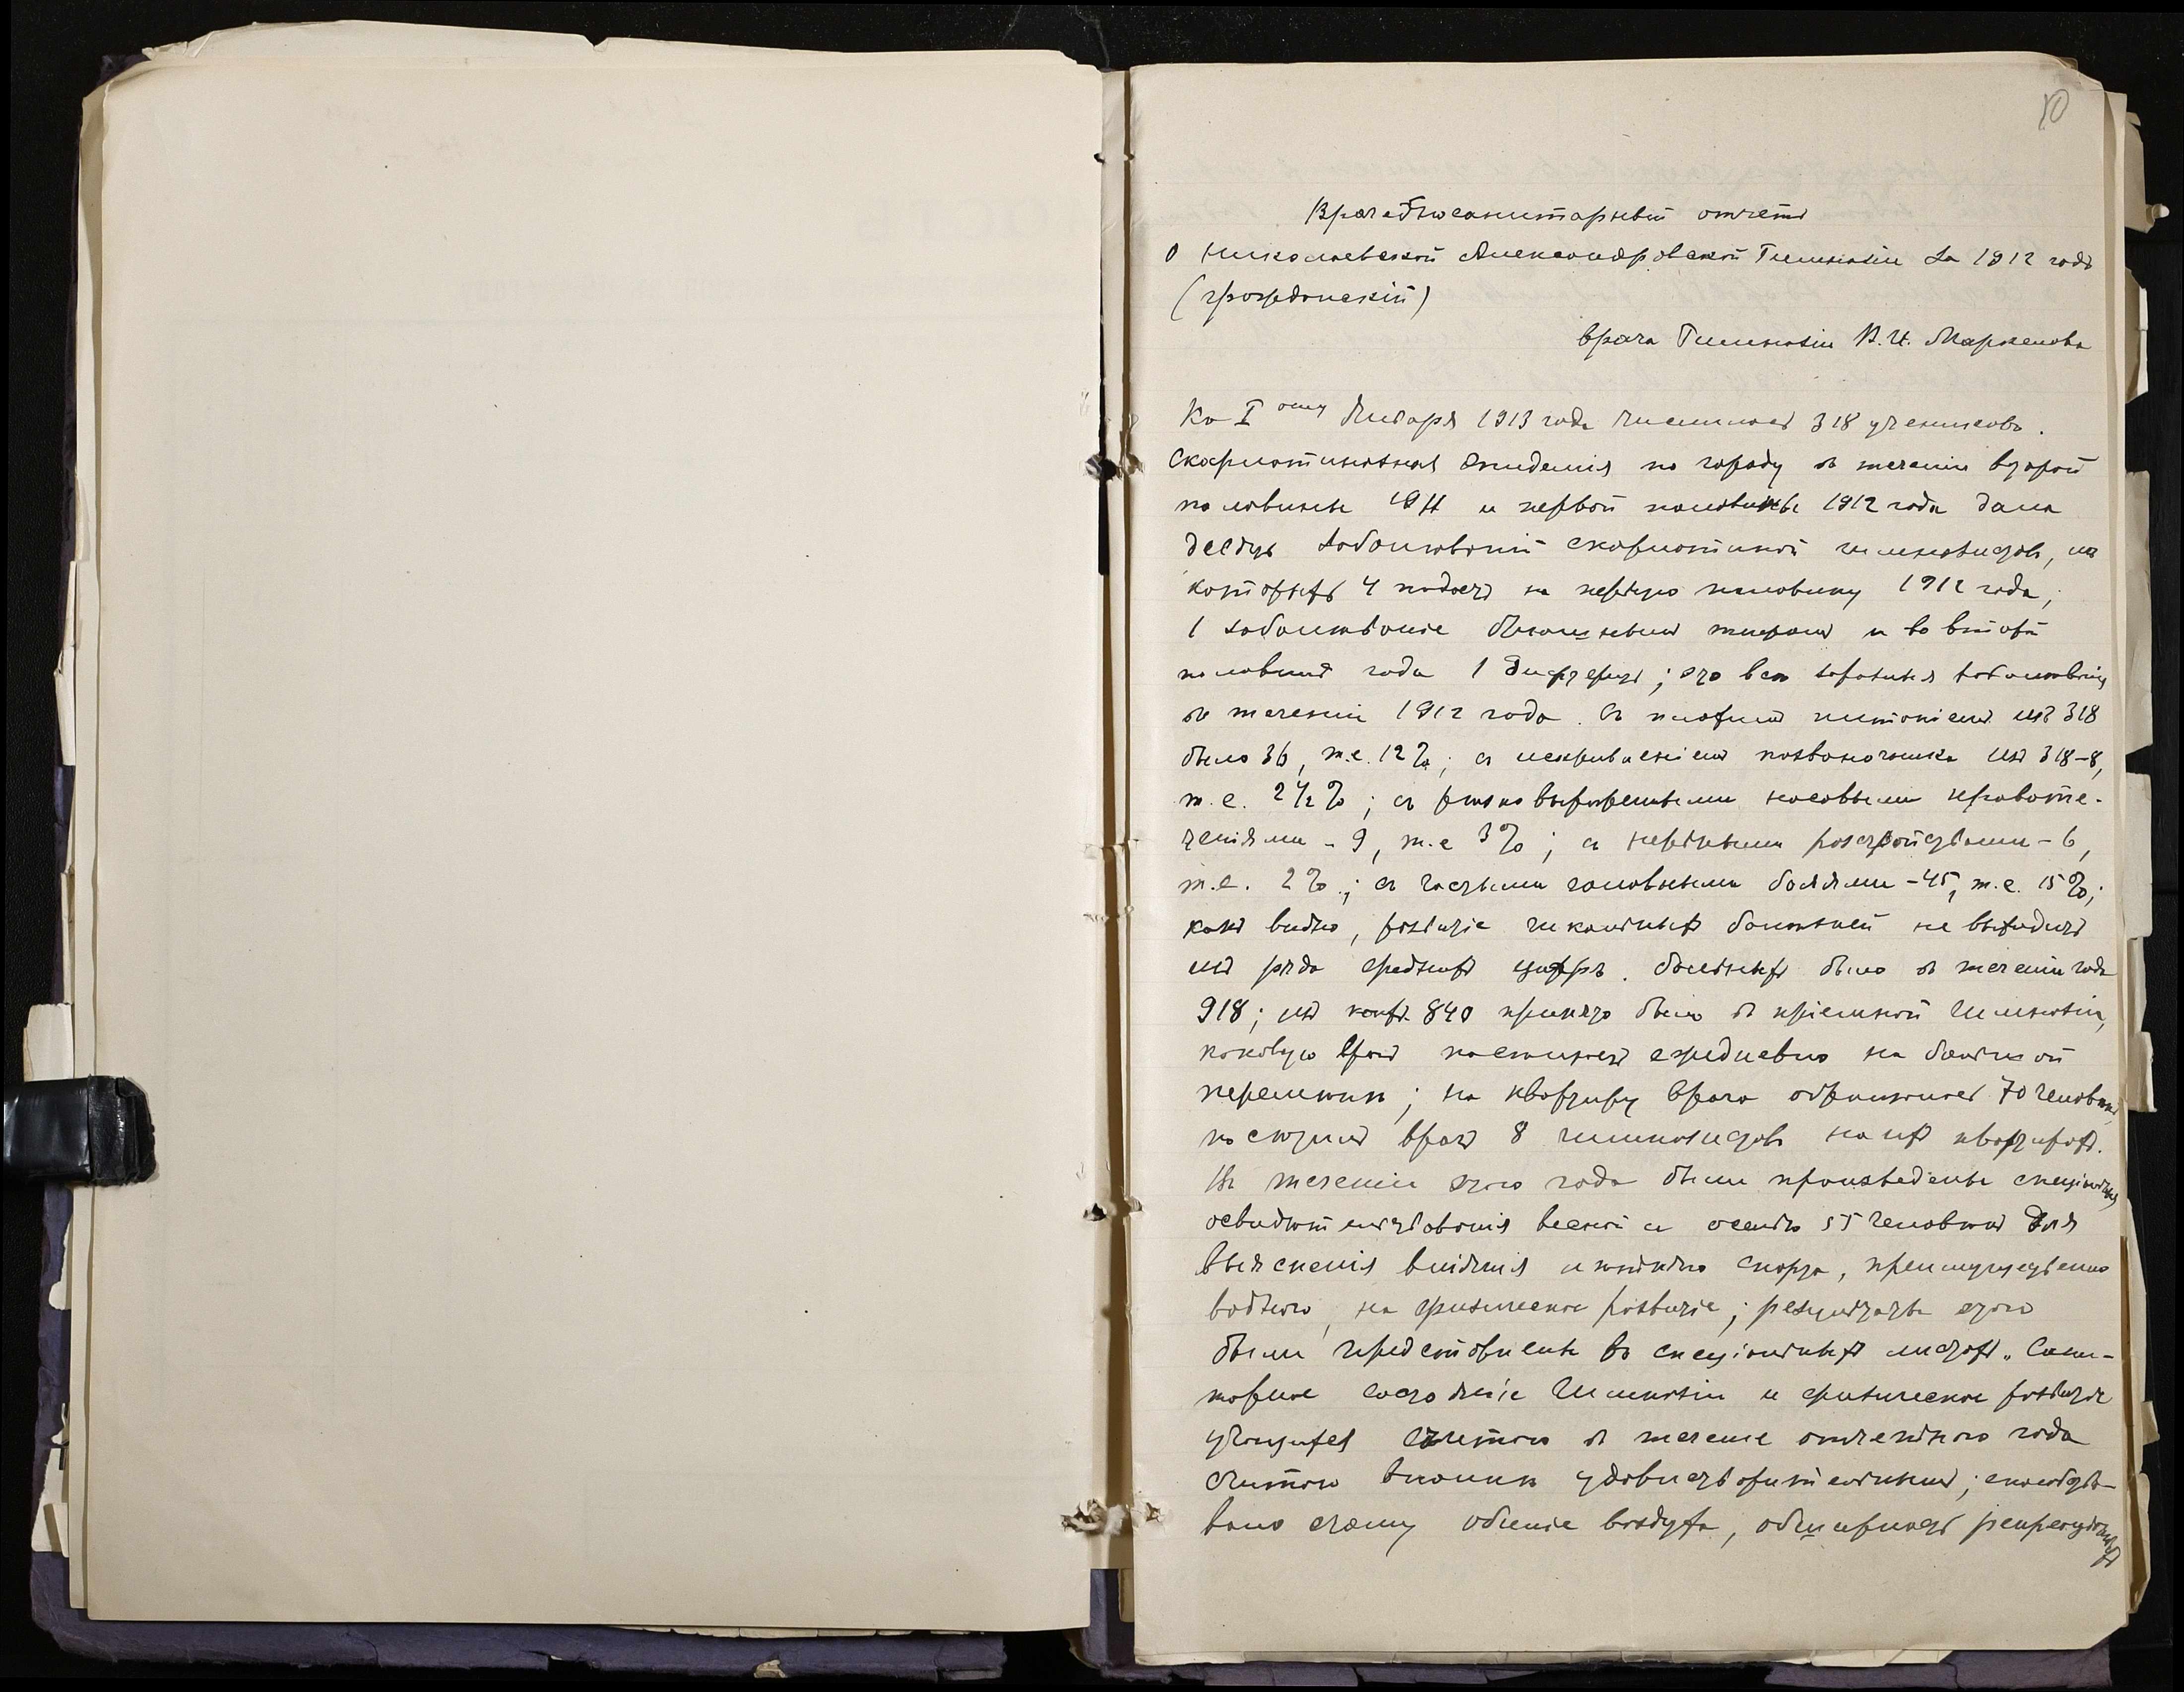 10
Врачебносанитарный отчетъ
О Николаевской Александровской Гимназіи за 1912 годъ
(гражданскій)
врача Гимназіи В. И.
Ко I ому Января 1913 года числилось 318 учениковъ.
Скарлатинозная эпидемія по городу въ теченіи второй
половины 1911 и первой половины 1912 года дала
десять заболѣваній скарлатиной гимназистовъ, изъ
которыхъ 4 падаетъ на первую половину 1912 года;
1 заболѣваніе брюшнымъ тифомъ и во второй
половинѣ года 1 дифтеритъ; это все заразныя заболѣванія
въ теченіи 1912 года. Съ плохимъ питаніемъ изъ 318
было 36, т.е. 12%; съ искривленіемъ позвоночника изъ 318–8,
т.е. 2 1/2 %; съ рѣзко выраженными носовыми кровоте-
ченіями – 9, т.е. 3%; съ нервными разстройствами – 6,
т.е. 2%; съ частыми головными болями – 45, т.е. 15%;
какъ видно, развитіе школьныхъ болѣзней не выходитъ
изъ ряда среднихъ цифръ. Больныхъ было въ теченіи года
918; изъ коихъ 840 принято было въ пріемной Гимназіи,
каковую врачъ посѣщаетъ ежедневно на большой
перемѣнѣ; на квартиру врача обращалось 70 человѣкъ,
посѣтилъ врачъ 8 гимназистовъ на ихъ квартирахъ.
Въ теченіи этого года были произведены спеціальныя
освидѣтельствованія весной и осенью 55 человѣкъ для
выясненія вліянія спорта, преимущественно
воднаго, на физическое развитіе; результаты этого
были представлены въ спеціальныхъ листахъ. Сани-
тарное состояніе Гимназіи и физическое развитіе
учащихся въ теченіе отчетнаго года
считаю вполнѣ удовлетворительнымъ; способство-
вало этому обиліе воздуха, обширность рекреаціонныхъ